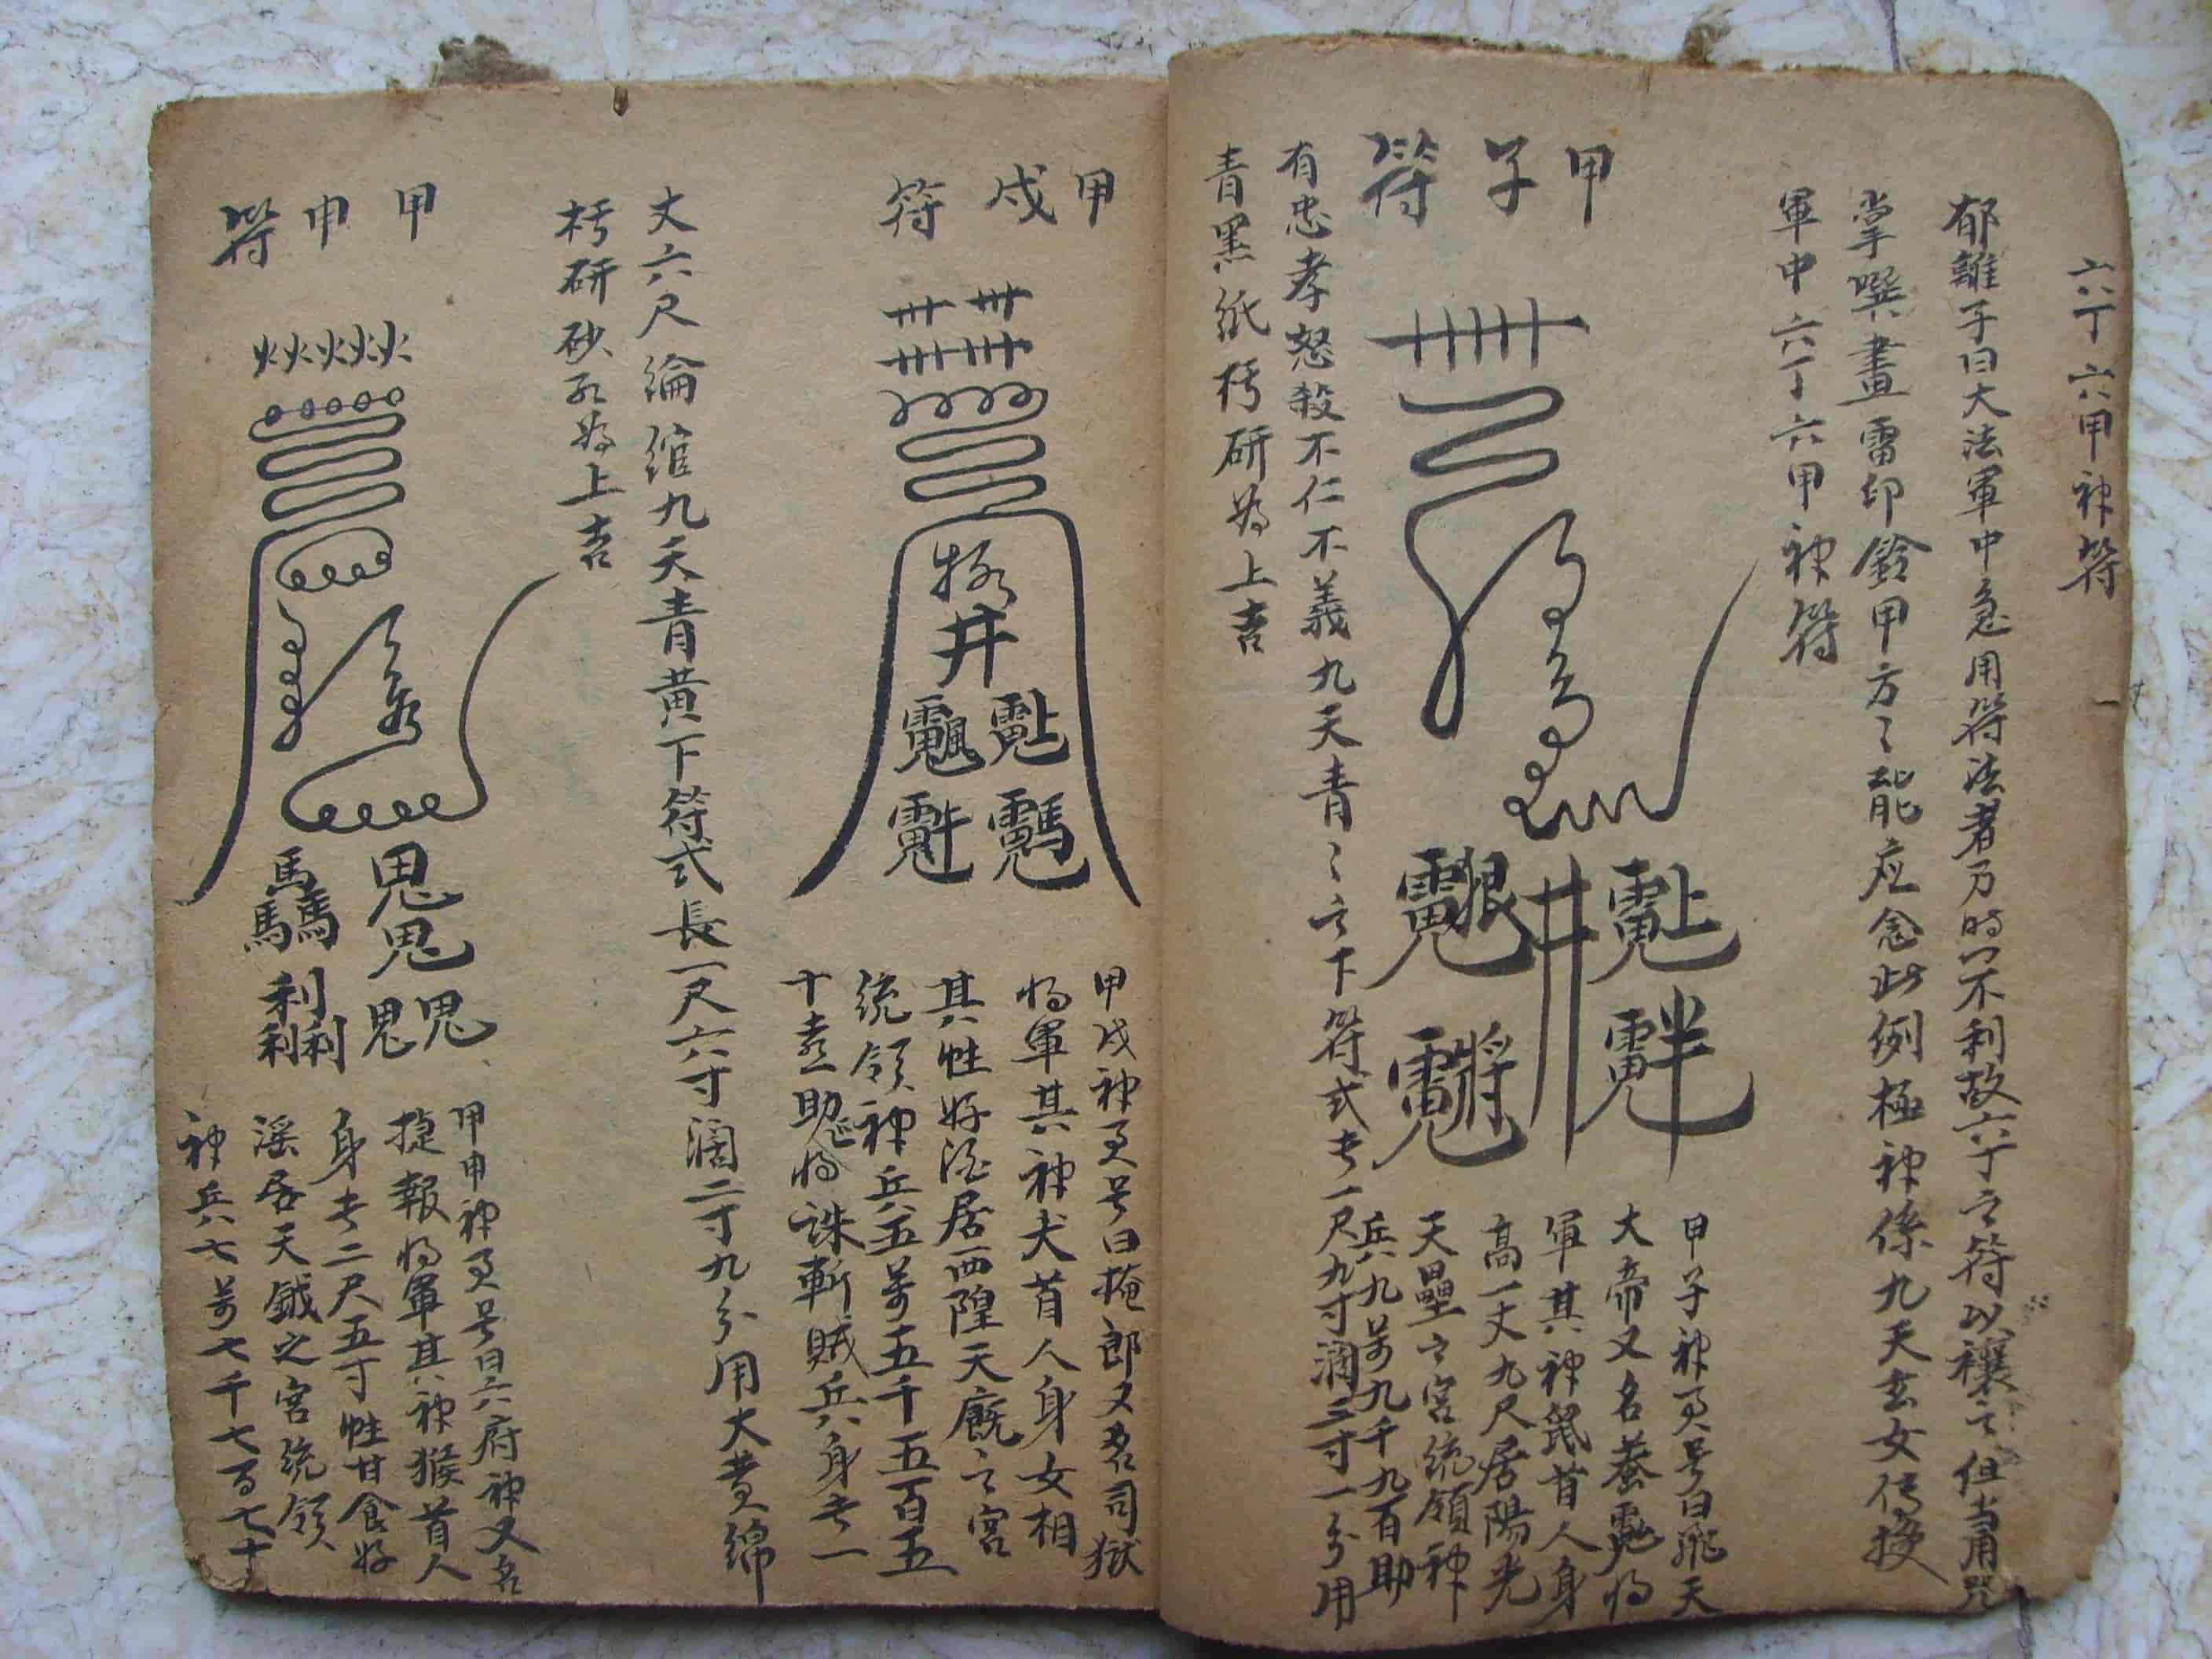 六丁六甲神符
郁離子曰大法軍中急用符法者乃時不利故六丁之符以禳之但当用
掌噀畫雷印鈴甲方〻能应念此例極神係九天玄女传授
軍中六丁六甲神符
甲子符
甲子神号曰飛天
大帝又名
軍其神鼠首人身
高一丈九尺居陽光
天壘之宮統領神
兵九萬九千九百助
有忠孝怒殺不仁不義九天青〻之下符式长一尺九寸濶三寸一分用
青黑紙研為上吉
甲戌符
甲戌神号曰掩郎又名司獄
将軍其神犬首人身女相
其性好酒居西隍天廐之宮
統領神兵五萬五千五百五
十助将誅斬賊兵身长一
丈六尺綸綰九天青黄下符式長一尺六寸濶二寸九分用大黄綿
研砂為上吉
甲申符
甲申神号曰六府神又名
捷報将軍其神猴首人
身长二尺五寸性甘食好
淫居天鉞之宮統領
神兵七萬七千七百七十